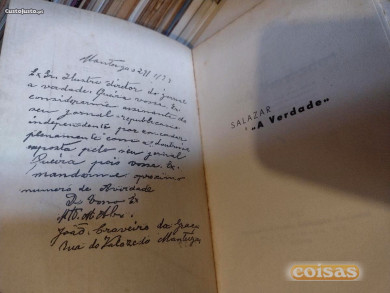 CustoJusto.pt
Manteigas
Ex. Ilustre Diretor do jornal
a verdade. Queira vossa Ex.
considerarme assinante do
seu jornal republicano
independente por concordar
plenamente com a doutrina
exposta pelo seu jornal
Queira pois vossa Ex.
mandarme o proximo
numero da Averdade
De Vossa Ex.
João Craveiro da Graça
Rua do Manteigas
SALAZAR
"A Verdade"
coisas